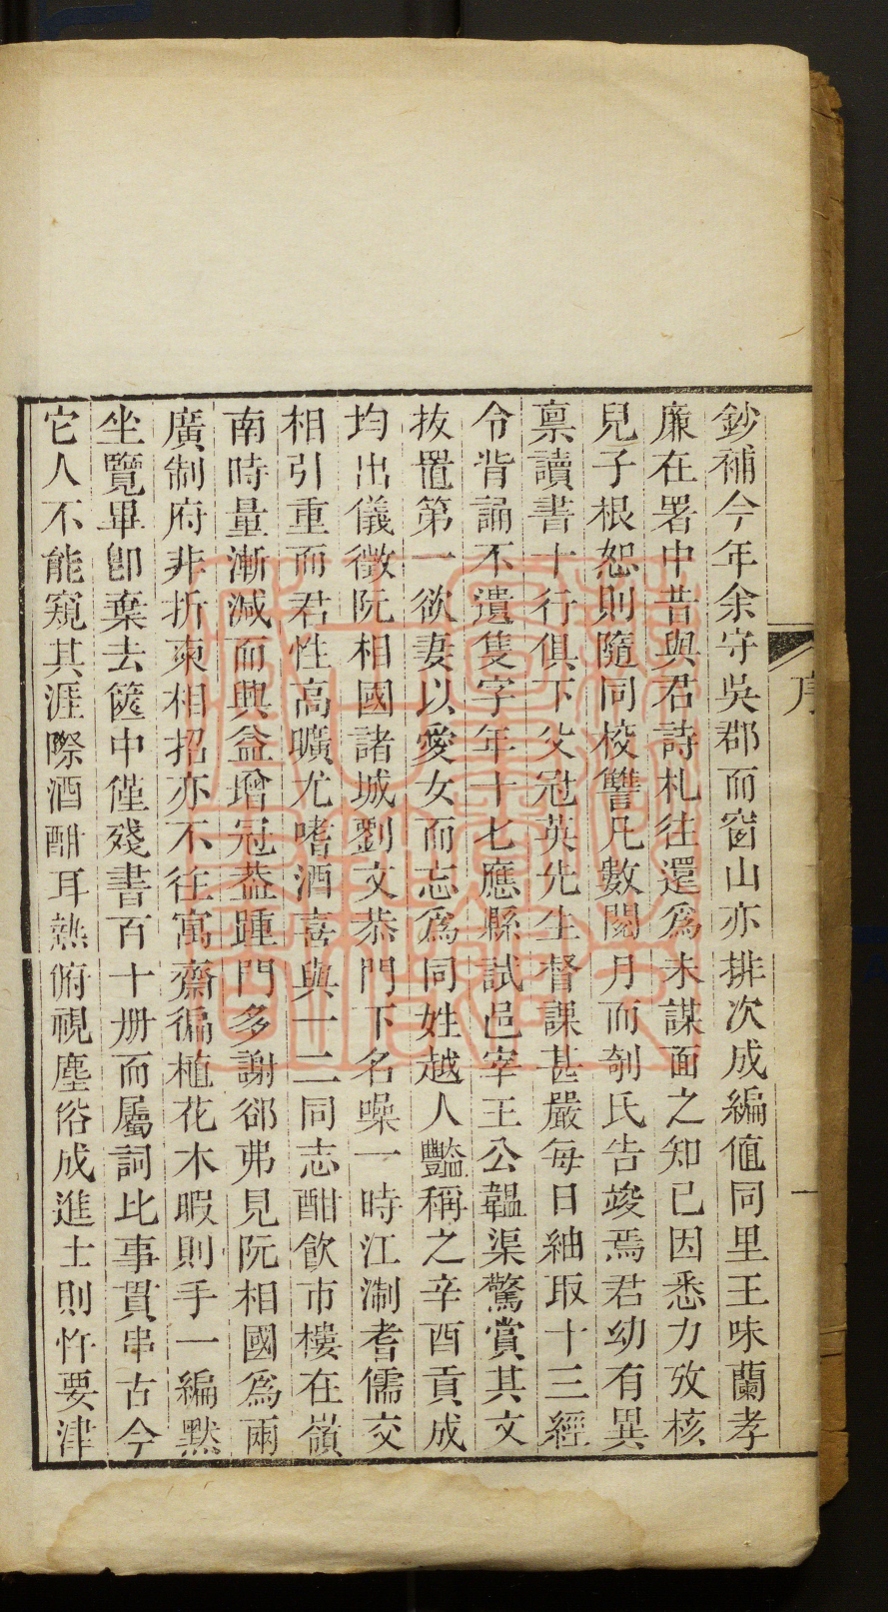 序
一
鈔補今年余守吳郡而窗山亦排次成編值同里王味蘭孝
廉在署中昔與君詩札往還爲未謀面之知已因悉力攷核
兒子根恕則隨同校讐凡數閱月而剞氏告竣焉君幼有異
稟讀書十行俱下父冠英先生督課甚嚴每日紬取十三經
令背誦不遺隻字年十七應縣試邑宰王公韞渠驚賞其文
拔置第一欲妻以愛女而志爲同姓越人豔稱之辛酉貢成
均出儀徵阮相國諸城劉文恭門下名噪一時江淛耆儒交
相引重而君性高曠尤嗜酒喜與一二同志酣飲市樓在嶺
南時量漸減而興益增冠葢踵門多謝郤弗見阮相國爲兩
廣制府非折柬相招亦不往寓齋徧植花木暇則手一編黙
坐覽畢卽棄去篋中僅殘書百十册而屬詞比事貫串古今
它人不能窺其涯際酒酣耳熱俯視塵俗成進士則忤要津